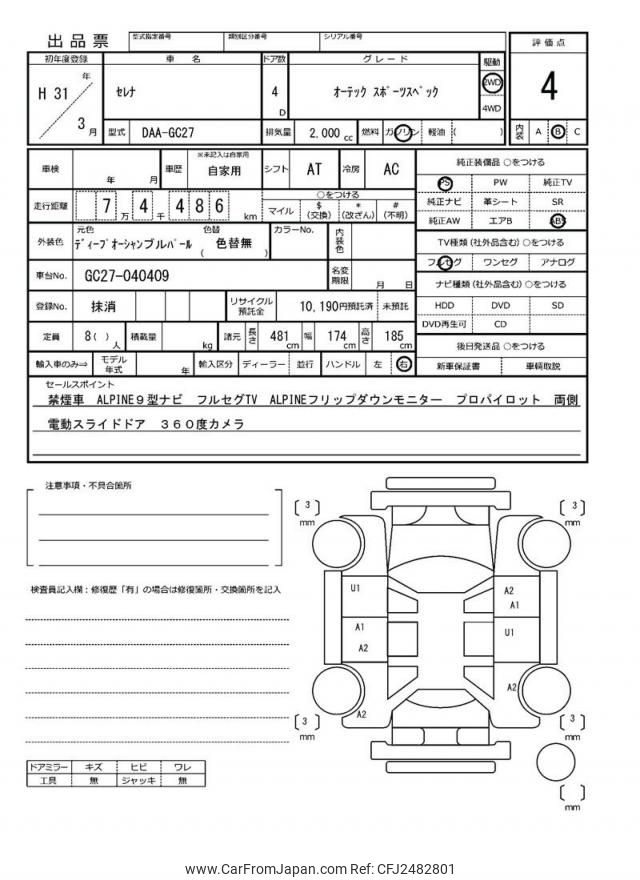 出品票
型式指定番号 類別区分番号 シリアル番号
評価点
4
内装 A B C
初年度登録 車名 ドア数 グレード 駆動
H 31 年 3 月
セレナ
4 D
オーテック スポーツスペック
2WD
4WD
型式 DAA-GC27 排気量 2,000 cc 燃料 ガソリン 軽油 ( )
車検 年 月 車歴 ※未記入は自家用 自家用 シフト AT 冷房 AC
走行距離 7 万 4 千 4 8 6 km
○をつける
マイル $ (交換) * (改ざん) # (不明)
外装色 元色 ディープオーシャンブルパール 色替 ( 色替無 ) カラーNo. 内装色
車台No. GC27-040409 名変期限 月 日
登録No. 抹消 リサイクル預託金 10,190円預託済 未預託
定員 8( ) 人 積載量 kg 諸元 長さ 481 cm 幅 174 cm 高さ 185 cm
輸入車のみ⇒ モデル年式 年 輸入区分 ディーラー 並行 ハンドル 左 右
純正装備品 ○をつける
PS PW 純正TV
純正ナビ 革シート SR
純正AW エアB ABS
TV種類(社外品含む)○をつける
フルセグ ワンセグ アナログ
ナビ種類(社外品含む)○をつける
HDD DVD SD
DVD再生可 CD
後日発送品 ○をつける
新車保証書 車輌取説
セールスポイント
禁煙車 ALPINE9型ナビ フルセグTV ALPINEフリップダウンモニター プロパイロット 両側
電動スライドドア 360度カメラ
注意事項・不具合箇所
検査員記入欄：修復歴「有」の場合は修復箇所・交換箇所を記入
ドアミラー キズ ヒビ ワレ
工具 無 ジャッキ 無
[ 3 ] mm
[ 3 ] mm
U1
A2
A1
A1
A2
U1
A2
A2
[ 3 ] mm
[ 3 ] mm
[ ] mm
www.CarFromJapan.com Ref: CFJ2482801